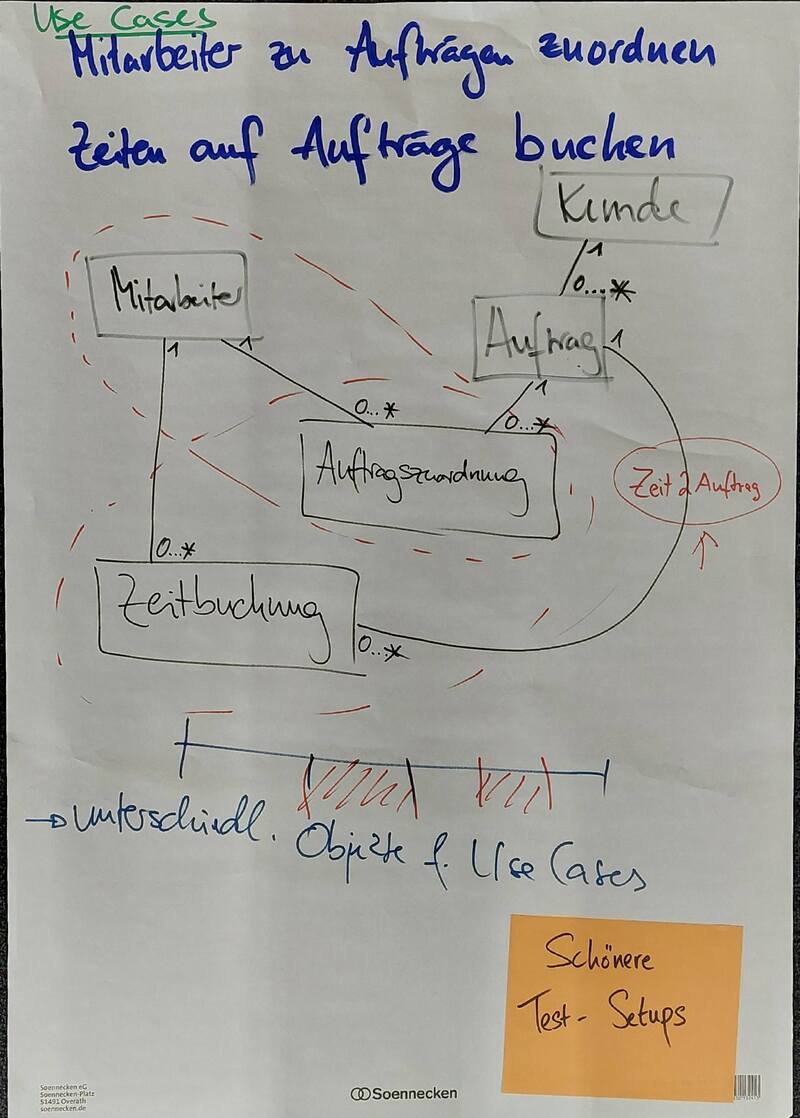 Use Cases
Mitarbeiter zu Aufträgen zuordnen
Zeiten auf Aufträge buchen
Kunde
1
0...*
Mitarbeiter
Auftrag
1
1
1
1
0...*
0...*
Auftragszuordnung
Zeit 2 Auftrag
0...*
Zeitbuchung
0...*
→ unterschiedl. Objekte f. Use Cases
Schönere
Test- Setups
Soennecken eG
Soennecken-Platz
51491 Overath
soennecken.de
Soennecken